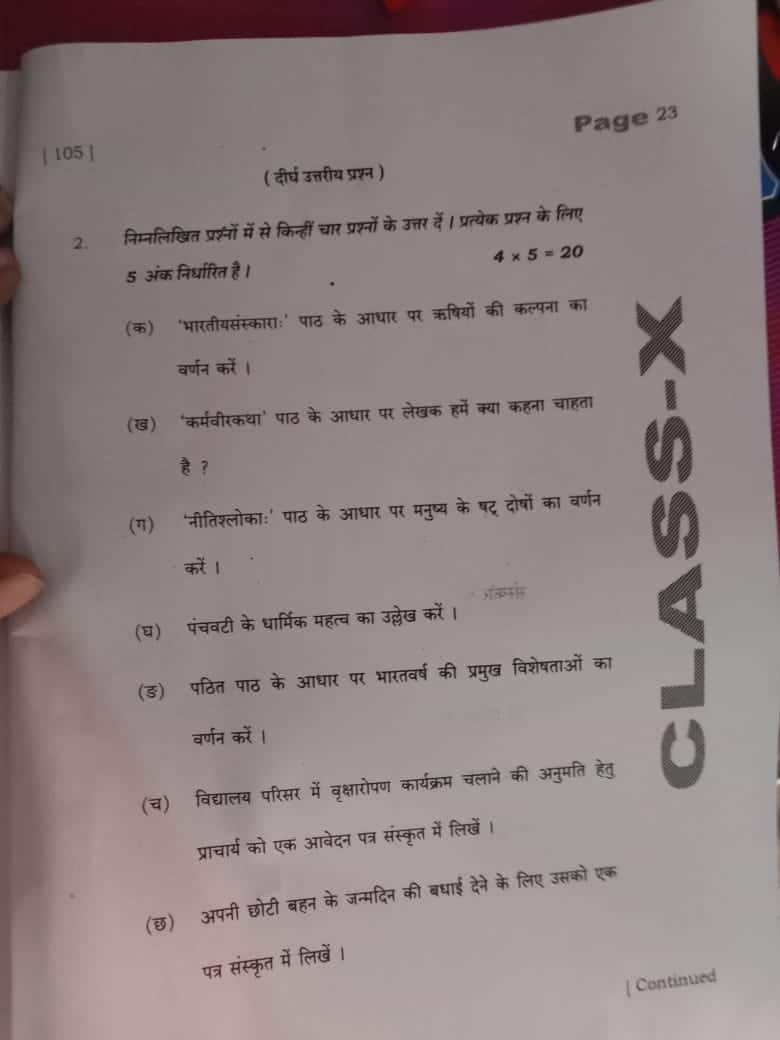 Page 23
| 105 |
( दीर्घ उत्तरीय प्रश्न )
2. निम्नलिखित प्रश्नों में से किन्हीं चार प्रश्नों के उत्तर दें । प्रत्येक प्रश्न के लिए
5 अंक निर्धारित है । 4 × 5 = 20
(क) 'भारतीयसंस्काराः' पाठ के आधार पर ऋषियों की कल्पना का
वर्णन करें ।
(ख) 'कर्मवीरकथा' पाठ के आधार पर लेखक हमें क्या कहना चाहता
है ?
(ग) 'नीतिश्लोकाः' पाठ के आधार पर मनुष्य के षट् दोषों का वर्णन
करें ।
(घ) पंचवटी के धार्मिक महत्व का उल्लेख करें ।
(ङ) पठित पाठ के आधार पर भारतवर्ष की प्रमुख विशेषताओं का
वर्णन करें ।
(च) विद्यालय परिसर में वृक्षारोपण कार्यक्रम चलाने की अनुमति हेतु
प्राचार्य को एक आवेदन पत्र संस्कृत में लिखें ।
(छ) अपनी छोटी बहन के जन्मदिन की बधाई देने के लिए उसको एक
पत्र संस्कृत में लिखें ।
CLASS-X
| Continued